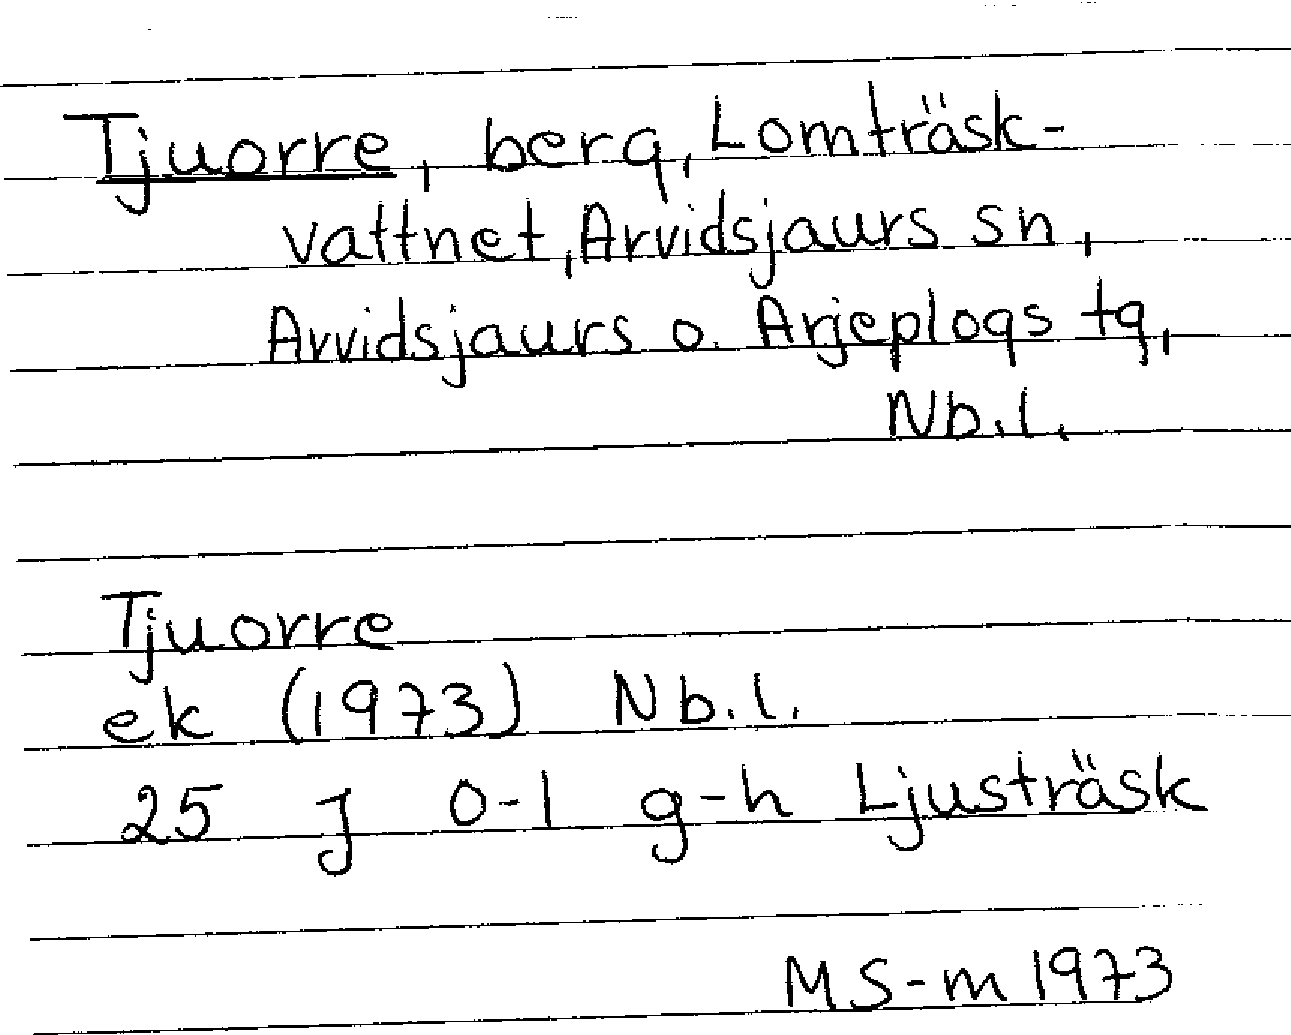 Tjuorre, berg, Lomträsk-
vattnet, Arvidsjaurs sn,
Arvidsjaurs o. Arjeplogs tg,
Nb.l.
Tjuorre
ek (1973) Nb.l.
25 J 0-1 g-h Ljusträsk
MS-m 1973